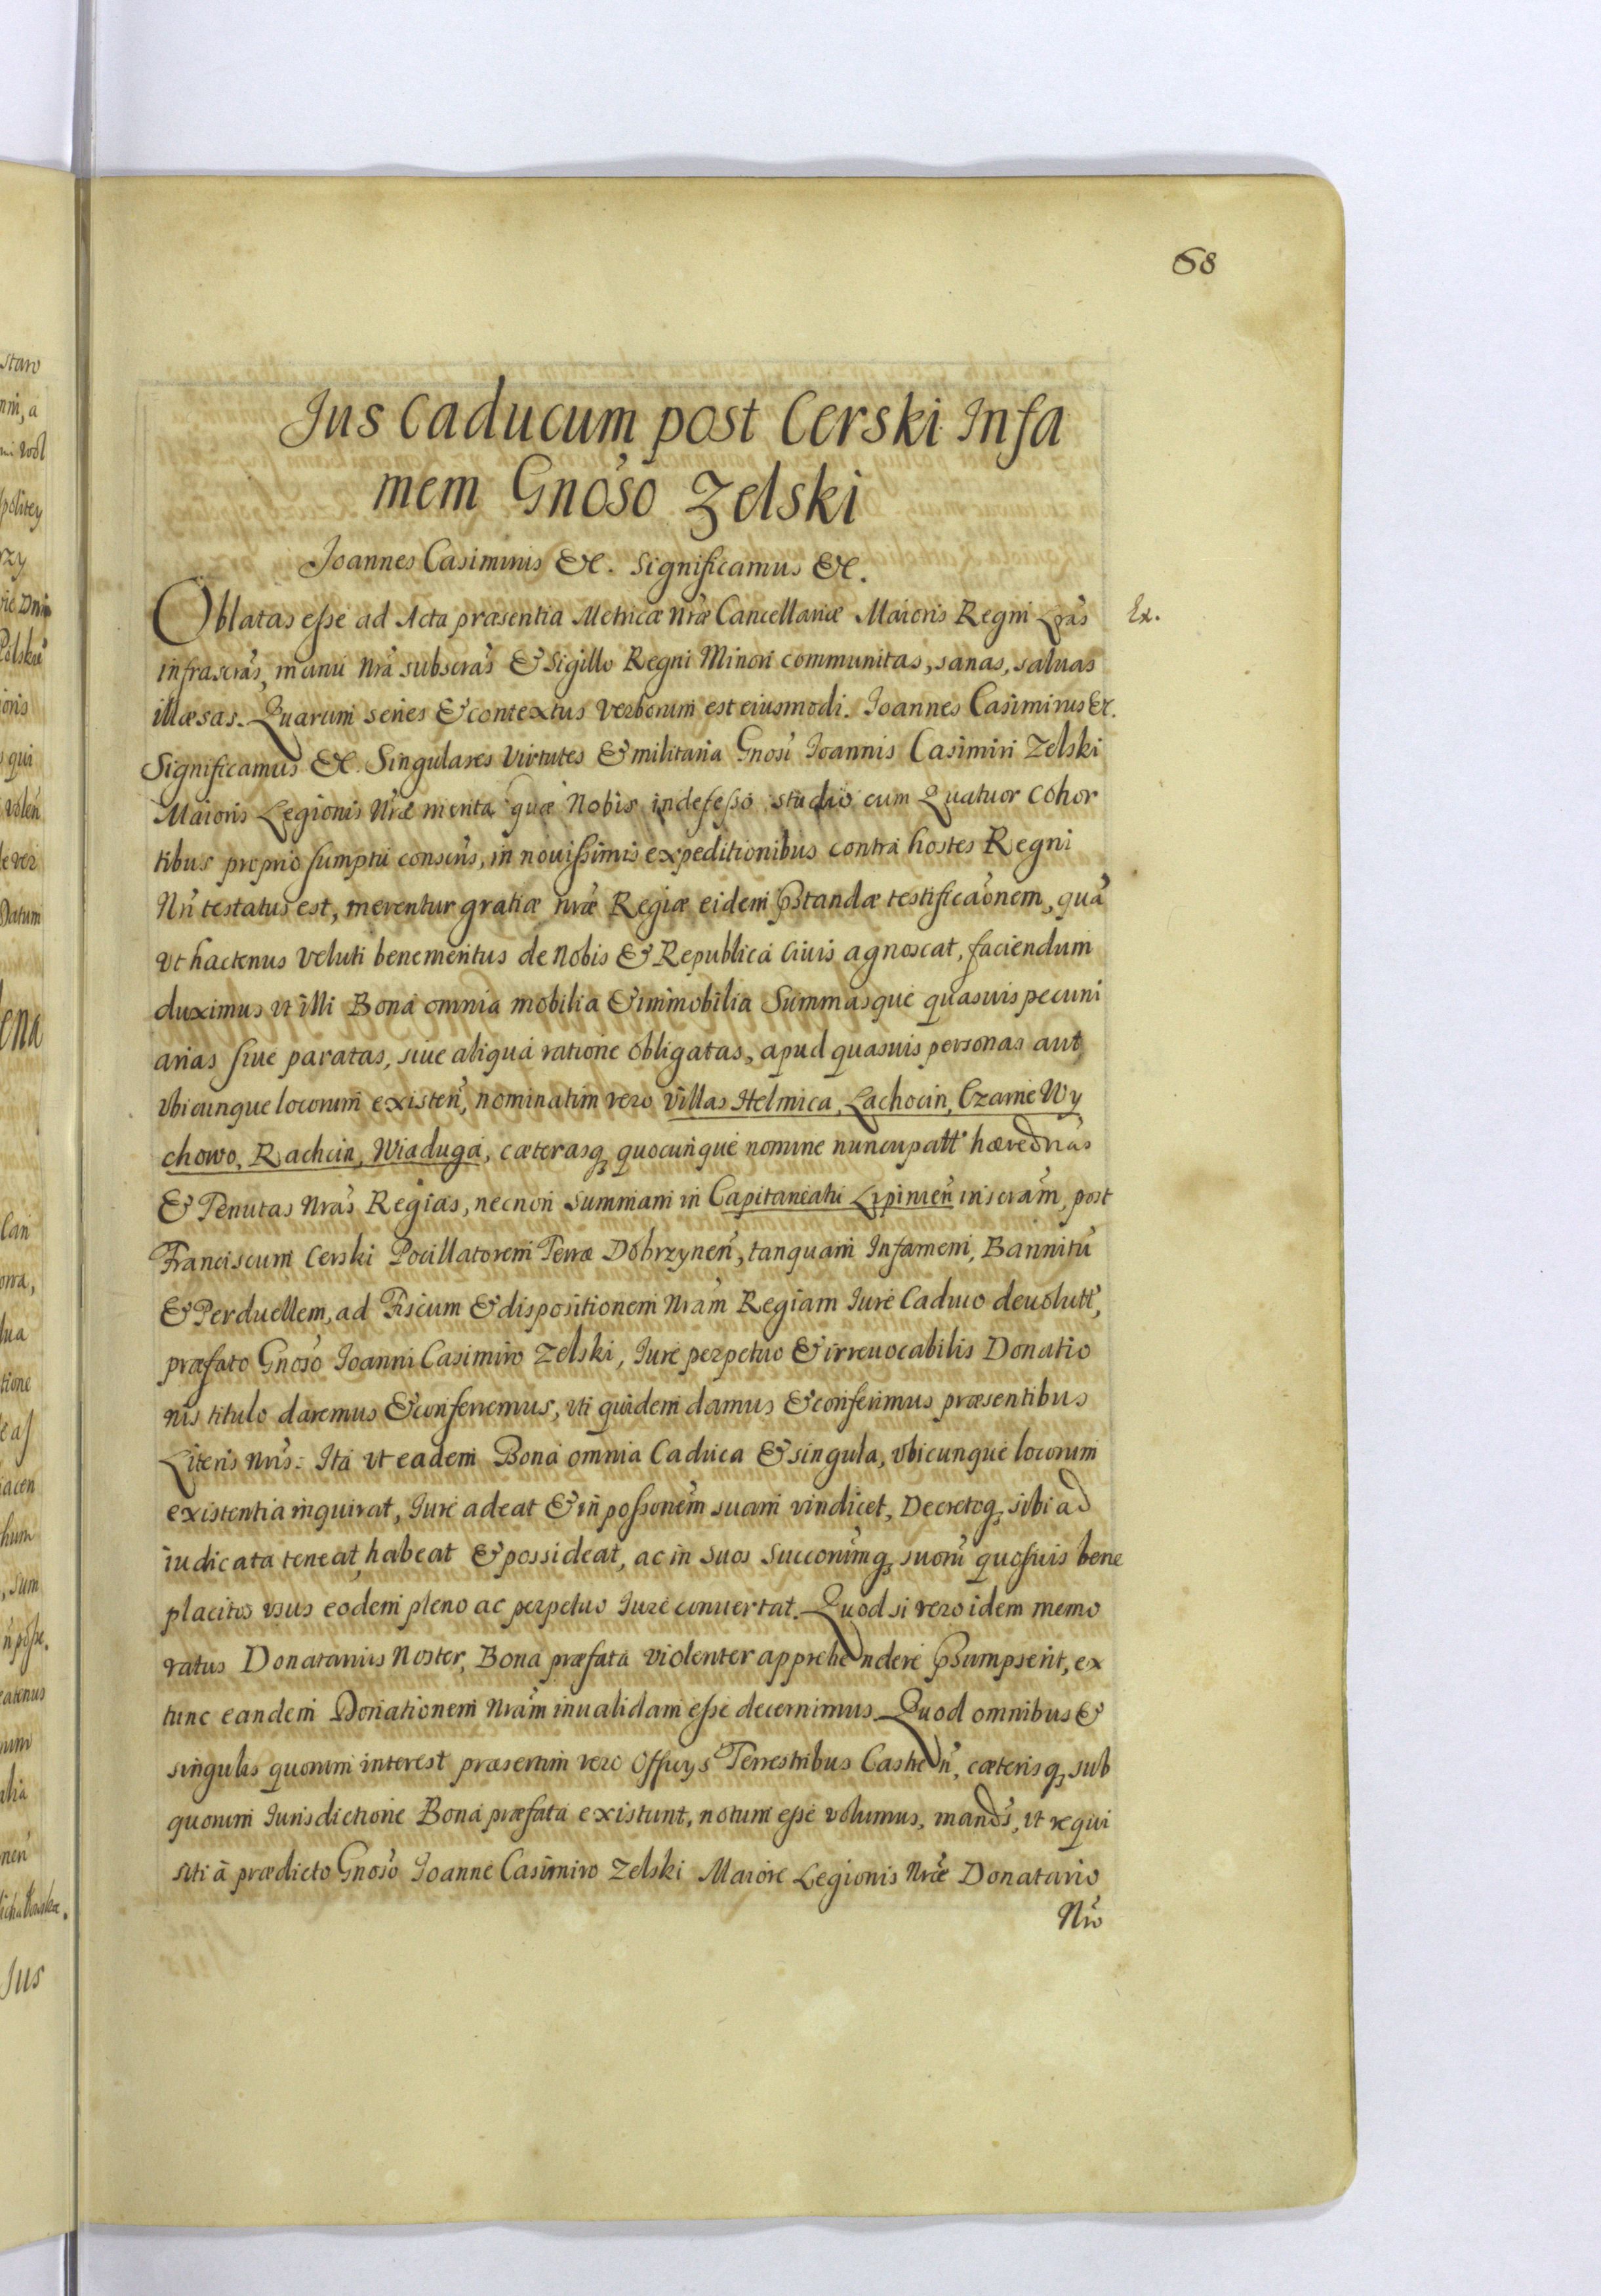 68
Jus Caducum post Cerski Infa
mem Gnoso Zelski
Joannes Casimirus &c. Significamus &c.
Oblatas esse ad Acta præsentia Metricæ Nræ Cancellariæ Maioris Regni Lras
Ex.
infrascras, manu Nra subscras & Sigillo Regni Minori communitas, sanas, saluas
illæsas. Quarum series & contextus Verborum est eiusmodi. Joannes Casimirus &c.
Significamus &c. Singulares Virtutes & militaria Gnosi Joannis Casimiri Zelski
Maioris Legionis Nræ merita quæ Nobis indefesso studio cum Quatuor Cohor
tibus proprio sumptu conscris, in nouissimis expeditionibus contra hostes Regni
Nri testatus est, merentur gratiæ nræ Regiæ eidem pstandæ testificaonem, qua
Vt hactenus Veluti benemeritus de Nobis & Republica Ciuis agnoscat, faciendum
duximus vt illi Bona omnia mobilia & immobilia Summasque quasuis pecuni
arias siue paratas, siue aliqua ratione obligatas, apud quasuis personas aut
Vbicunque locorum existen, nominatim vero villas Helmica, Lachocin, Czarne Wy
chowo, Rachcin, Wiaduga, cæterasq quocunque nomine nuncupatt hæredrias
& Tenutas Nras Regias, necnon summam in Capitaneatu Lipinien inscram, post
Franciscum Cerski Pocillatorem Terræ Dobrzynen, tanquam Infamem, Bannitu
& Perduellem, ad Fiscum & dispositionem Nram Regiam Jure Caduco deuolutt,
præfato Gnoso Joanni Casimiro Zelski, Jure perpetuo & irreuocabilis Donatio
nis titulo daremus & conferremus, vti quidem damus & conferimus præsentibus
Literis Nris. Ita vt eadem Bona omnia Caduca & singula, vbicunque locorum
existentia inquirat, Jure adeat & in possonem suam vindicet, Decretoq sibi ad
iudicata teneat, habeat & possideat, ac in suos Succorumq suoru quosuis bene
placitos vsus eodem pleno ac perpetuo Jure conuertat. Quod si vero idem memo
ratus Donatarius Noster, Bona præfata violenter apprehendere psumpserit, ex
tunc eandem Donationem Nram inualidam esse decernimus. Quod omnibus &
singulis quorum interest præsertim vero Officys Terrestribus Castren, cæterisq sub
quorum Jurisdictione Bona præfata existunt, notum esse volumus, mands, vt requi
siti à prædicto Gnoso Joanne Casimiro Zelski Maiore Legionis Nræ Donatario
Nro